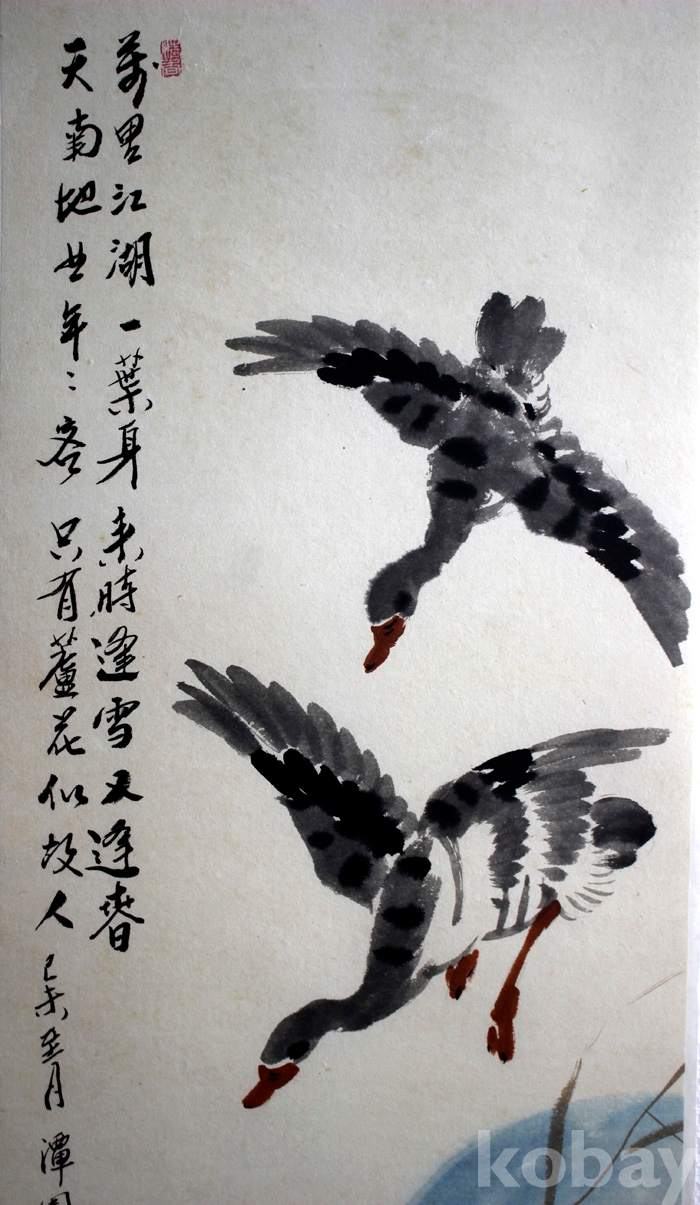 萬里江湖一葉身來時逢雪又逢春
天南地北年〻客只有蘆花似故人 己未至月 潭
kobay